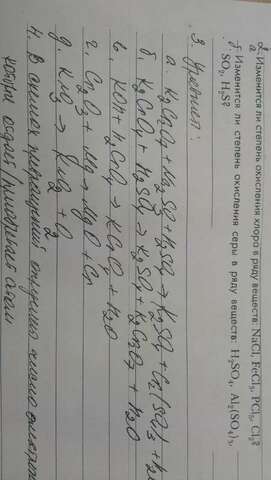 2. Изменится ли степень окисления хлора в ряду веществ: NaCl, FeCl₃, PCl₅, Cl₂?
а.
б. Изменится ли степень окисления серы в ряду веществ: H₂SO₄, Al₂(SO₄)₃,
SO₂, H₂S?
3. Уравнения:
а. K₂Cr₂O₇ + Na₂SO₃ + H₂SO₄ → K₂SO₄ + Cr₂(SO₄)₃ +
б. K₂CrO₄ + H₂SO₄ → K₂SO₄ + K₂Cr₂O₇ + H₂O
в. KOH + H₂CrO₄ → K₂CrO₄ + H₂O
г. Cr₂O₃ + Mg → MgO + Cr
д. KNO₃ → KNO₂ + O₂
4. В схемах превращений